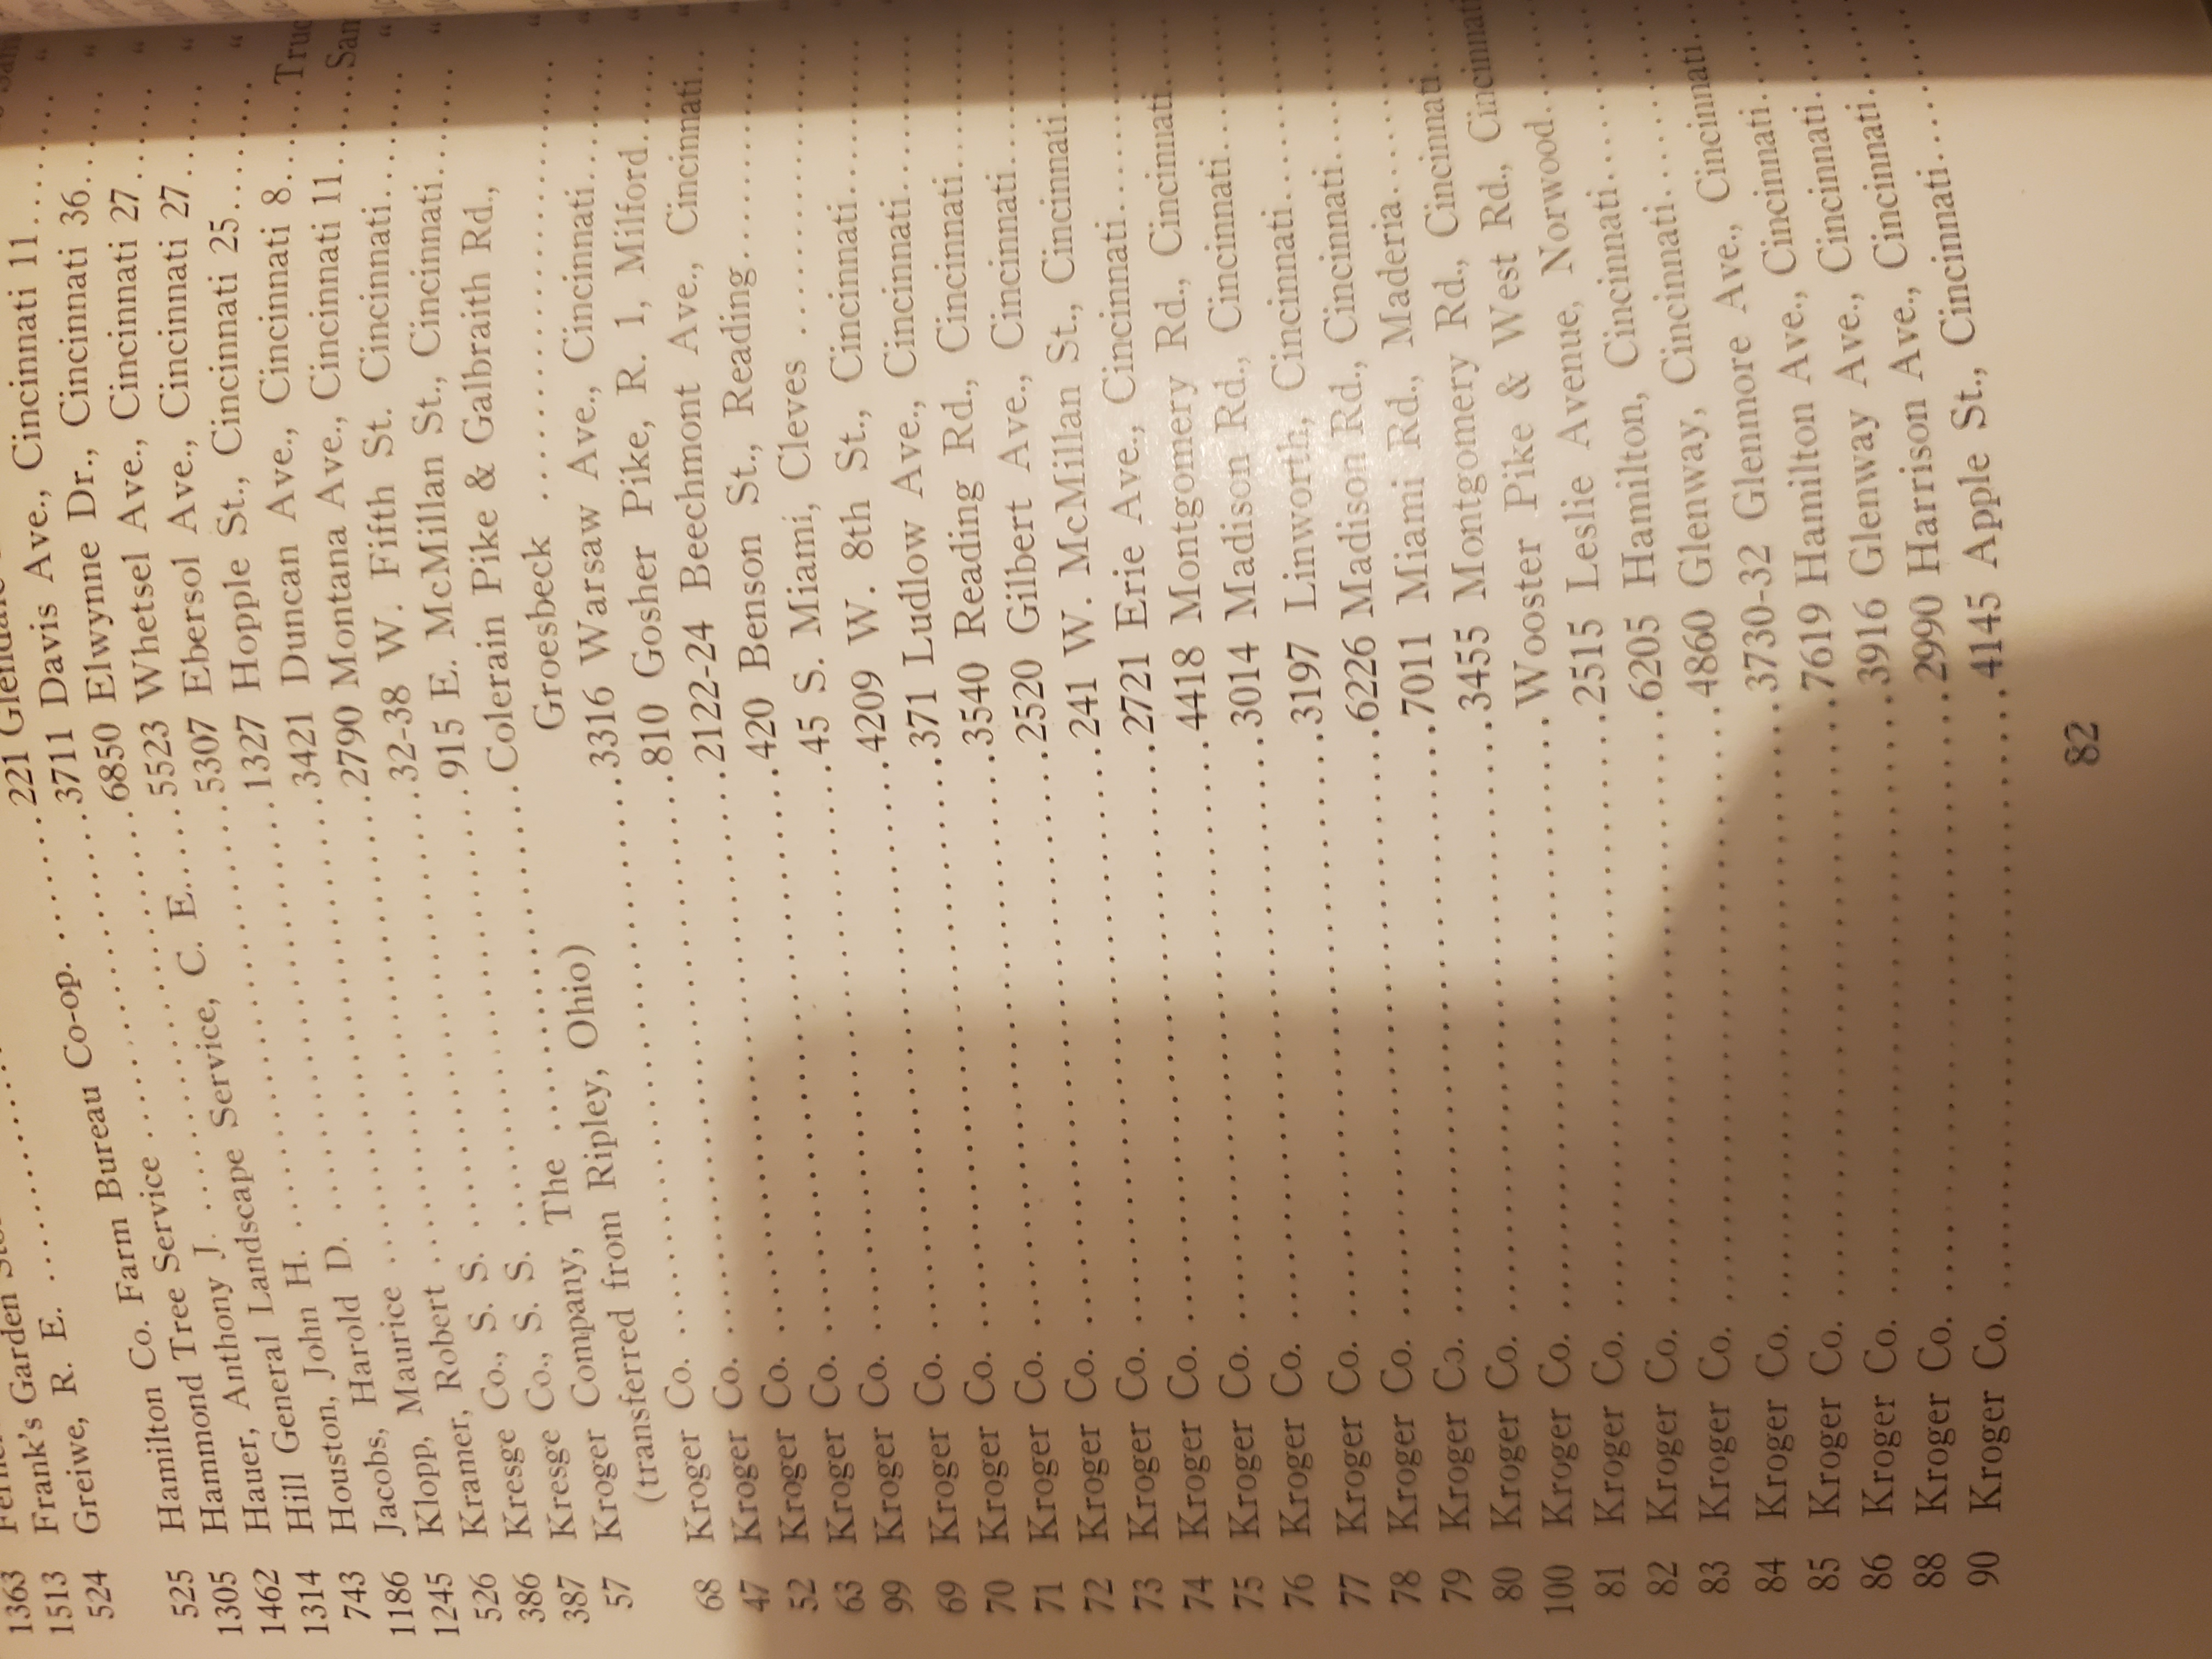 1363 Ferne
1513 Frank's Garden Sto
524 Greiwe, R. E. ....................
525 Hamilton Co. Farm Bureau Co-op. ........221 Glendale
1305 Hammond Tree Service ....................3711 Davis Ave., Cincinnati 11......
1462 Hauer, Anthony J. ....................6850 Elwynne Dr., Cincinnati 36.....
1314 Hill General Landscape Service, C. E.....5523 Whetsel Ave., Cincinnati 27.....
743 Houston, John H. ....................5307 Ebersol Ave., Cincinnati 27.....
1186 Jacobs, Harold D. ....................1327 Hopple St., Cincinnati 25......
1245 Klopp, Maurice ....................3421 Duncan Ave., Cincinnati 8....Truc
526 Kramer, Robert ....................2790 Montana Ave., Cincinnati 11.....San
386 Kresge Co., S. S. ....................32-38 W. Fifth St. Cincinnati......
387 Kresge Co., S. S. ....................915 E. McMillan St., Cincinnati......
57 Kroger Company, The ....................Colerain Pike & Galbraith Rd.,
(transferred from Ripley, Ohio) Groesbeck ....................
68 Kroger Co. ....................3316 Warsaw Ave., Cincinnati......
47 Kroger Co. ....................810 Gosher Pike, R. 1, Milford......
52 Kroger Co. ....................2122-24 Beechmont Ave., Cincinnati..
63 Kroger Co. ....................420 Benson St., Reading............
99 Kroger Co. ....................45 S. Miami, Cleves ...............
69 Kroger Co. ....................4209 W. 8th St., Cincinnati........
70 Kroger Co. ....................371 Ludlow Ave., Cincinnati........
71 Kroger Co. ....................3540 Reading Rd., Cincinnati.......
72 Kroger Co. ....................2520 Gilbert Ave., Cincinnati......
73 Kroger Co. ....................241 W. McMillan St., Cincinnati.....
74 Kroger Co. ....................2721 Erie Ave., Cincinnati.........
75 Kroger Co. ....................4418 Montgomery Rd., Cincinnati....
76 Kroger Co. ....................3014 Madison Rd., Cincinnati.......
77 Kroger Co. ....................3197 Linworth, Cincinnati..........
78 Kroger Co. ....................6226 Madison Rd., Cincinnati.......
79 Kroger Co. ....................7011 Miami Rd., Maderia............
80 Kroger Co. ....................3455 Montgomery Rd., Cincinnati....
100 Kroger Co. ....................Wooster Pike & West Rd., Cincinnati
81 Kroger Co. ....................2515 Leslie Avenue, Norwood......
82 Kroger Co. ....................6205 Hamilton, Cincinnati........
83 Kroger Co. ....................4860 Glenway, Cincinnati.........
84 Kroger Co. ....................3730-32 Glenmore Ave., Cincinnati...
85 Kroger Co. ....................7619 Hamilton Ave., Cincinnati.....
86 Kroger Co. ....................3916 Glenway Ave., Cincinnati.....
88 Kroger Co. ....................2990 Harrison Ave., Cincinnati.....
90 Kroger Co. ....................4145 Apple St., Cincinnati........
82